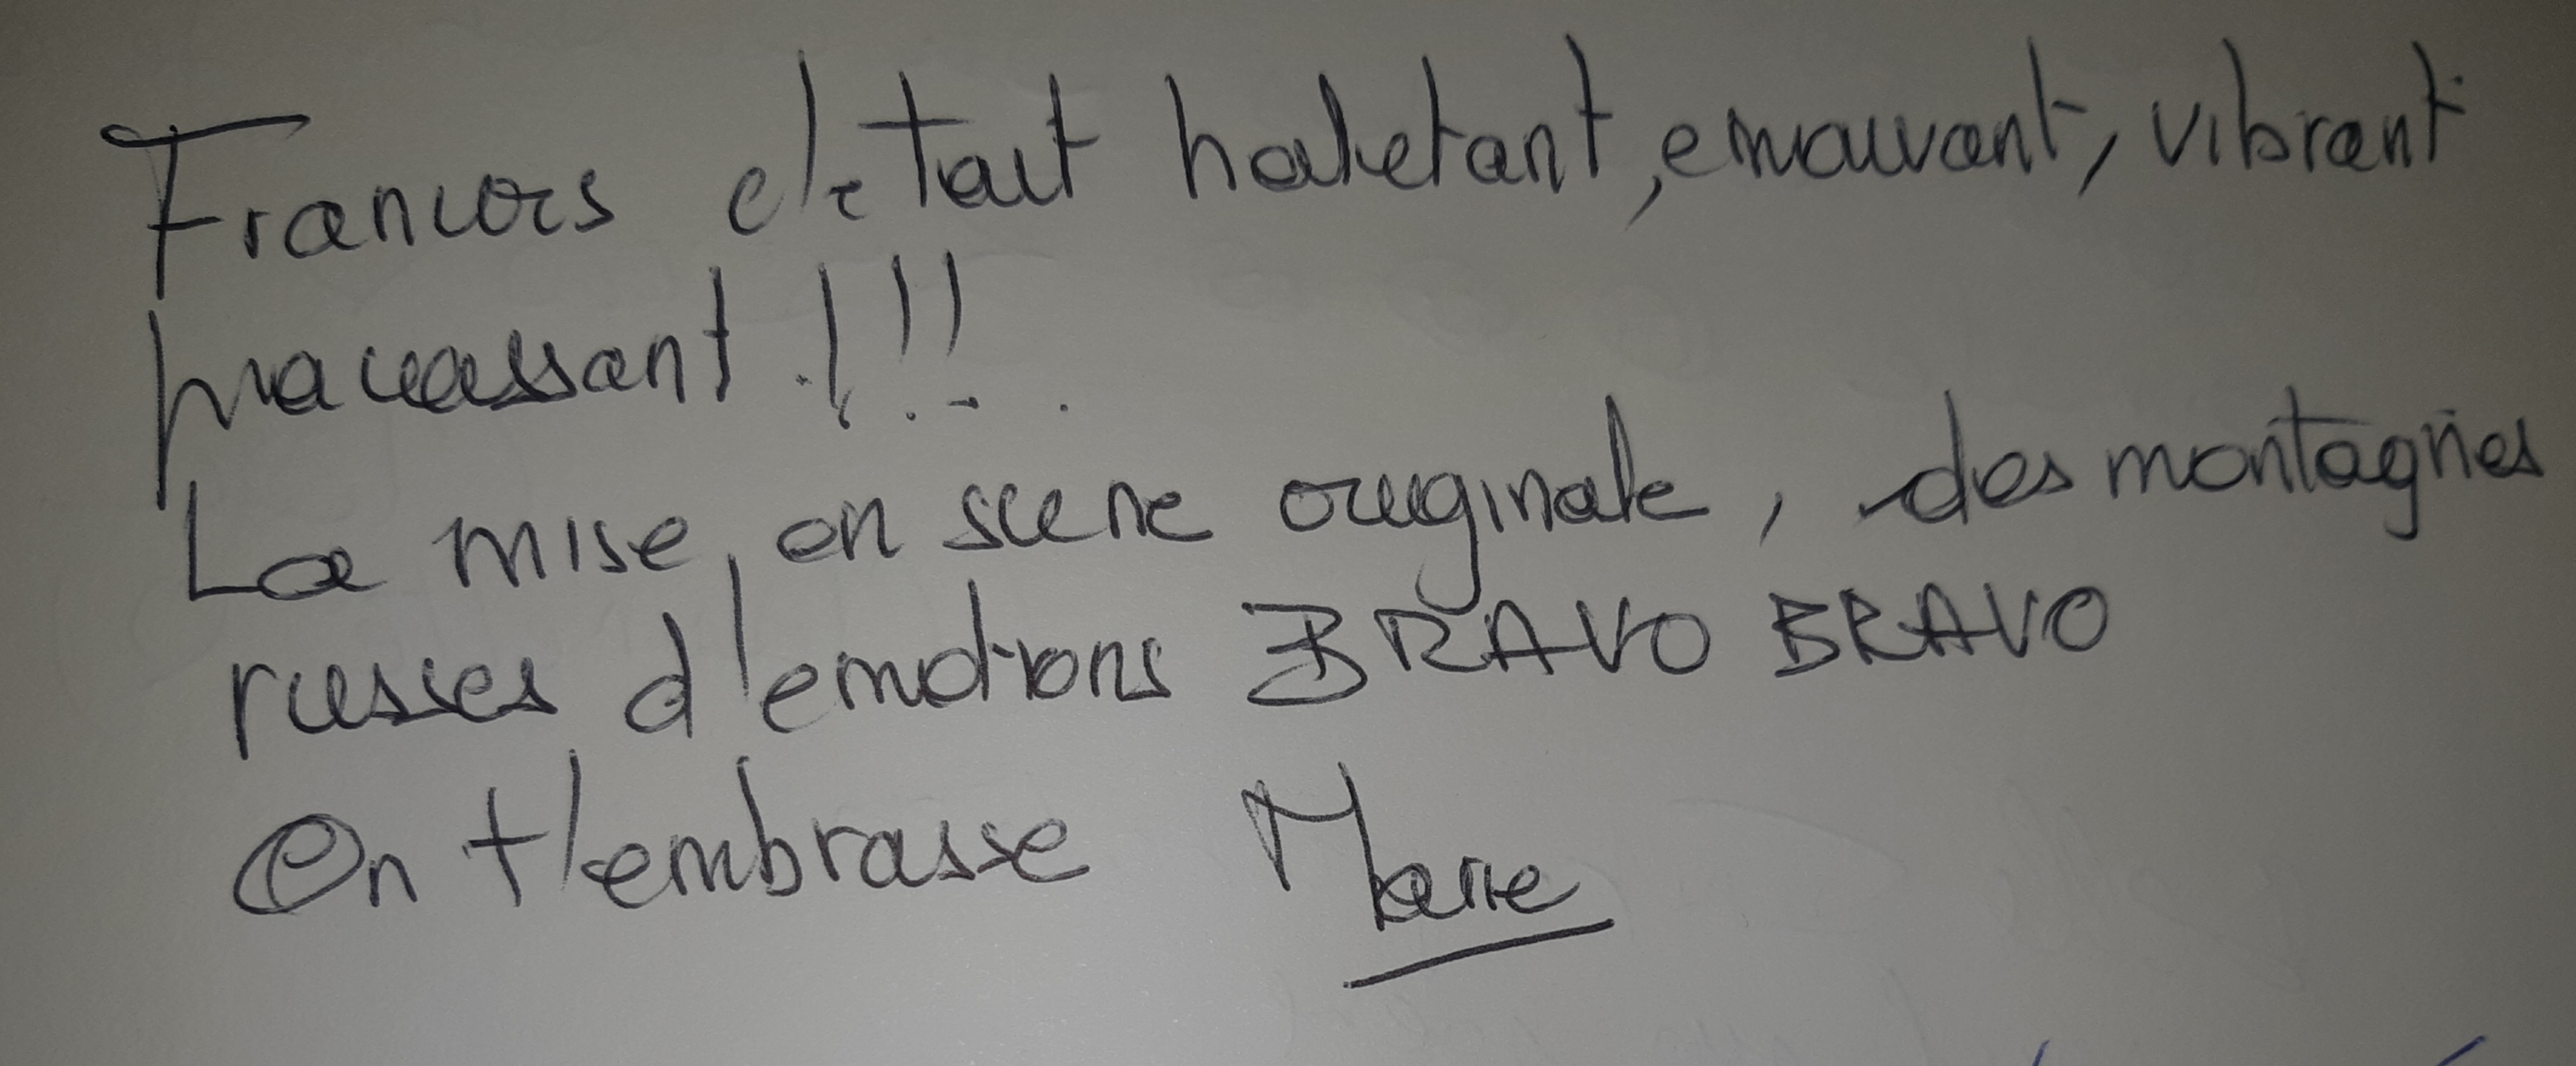 Francois c'etait haletant, emouvant, vibrant
fracassant !!!.
La mise en scene originale, des montagnes
russes d'emotions BRAVO BRAVO
On t'embrasse Marie